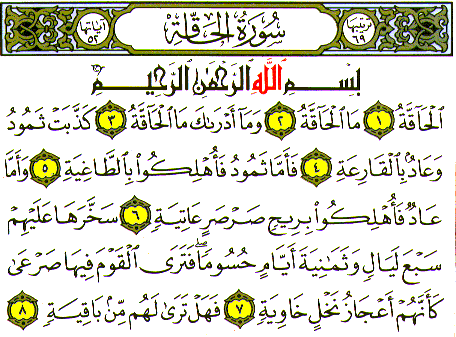 ترتيبها ٦٩ سُورَةُ الْحَاقَّةِ آياتها ٥٢
بِسْمِ اللَّهِ الرَّحْمَٰنِ الرَّحِيمِ
الْحَاقَّةُ ١ مَا الْحَاقَّةُ ٢ وَمَا أَدْرَاكَ مَا الْحَاقَّةُ ٣ كَذَّبَتْ ثَمُودُ
وَعَادٌ بِالْقَارِعَةِ ٤ فَأَمَّا ثَمُودُ فَأُهْلِكُوا بِالطَّاغِيَةِ ٥ وَأَمَّا
عَادٌ فَأُهْلِكُوا بِرِيحٍ صَرْصَرٍ عَاتِيَةٍ ٦ سَخَّرَهَا عَلَيْهِمْ
سَبْعَ لَيَالٍ وَثَمَٰنِيَةَ أَيَّامٍ حُسُومًا ۖ فَتَرَى الْقَوْمَ فِيهَا صَرْعَىٰ
كَأَنَّهُمْ أَعْجَازُ نَخْلٍ خَاوِيَةٍ ٧ فَهَلْ تَرَىٰ لَهُم مِّن بَاقِيَةٍ ٨